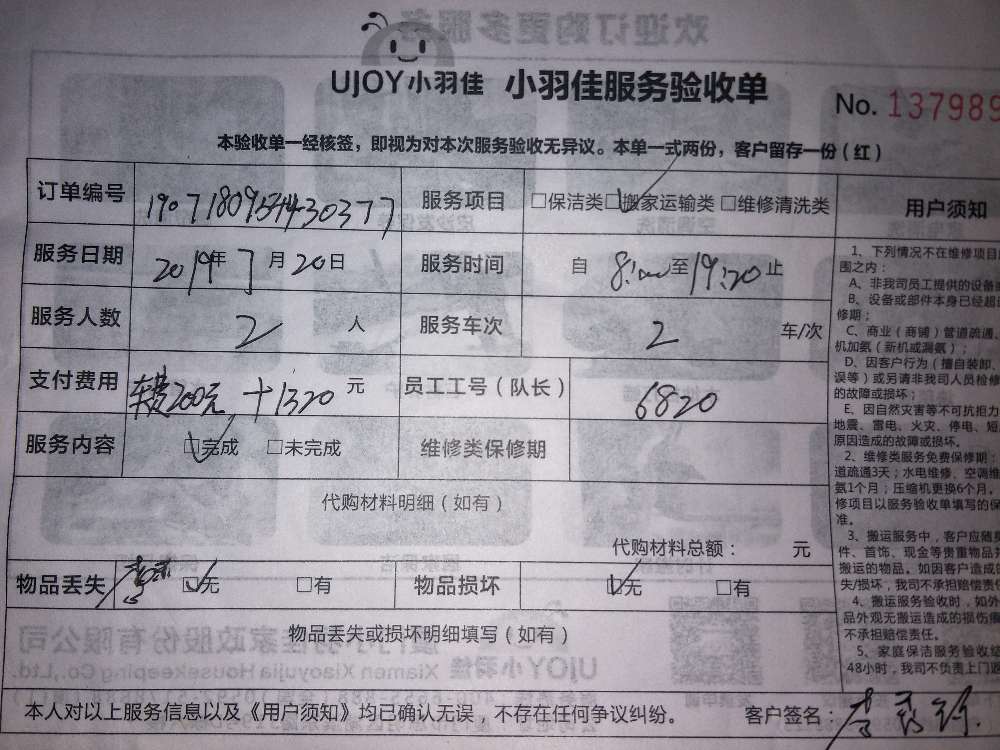 UJOY小羽佳 小羽佳服务验收单
No. 137989
本验收单一经核签，即视为对本次服务验收无异议。本单一式两份，客户留存一份（红）
订单编号 190718095444-30377 服务项目 □保洁类 □搬家运输类 □维修清洗类
服务日期 2019年7月20日 服务时间 自 8:00至19:20止
服务人数 2 人 服务车次 2 车/次
支付费用 200元，+1320 元 员工工号（队长） 6820
服务内容 □完成 □未完成 维修类保修期
代购材料明细（如有）
代购材料总额： 元
物品丢失 □无 □有 物品损坏 □无 □有
物品丢失或损坏明细填写（如有）
本人对以上服务信息以及《用户须知》均已确认无误，不存在任何争议纠纷。 客户签名：李
用户须知
1、下列情况不在维修项目
围之内：
A、非我司员工提供的设备
B、设备或部件本身已经超
修期；
C、商业（商铺）管道疏通、
机加氨（新机或漏氨）；
D、因客户行为（擅自装卸、
误等）或另请非我司人员检修
的故障或损坏；
E、因自然灾害等不可抗拒力
地震、雷电、火灾、停电、短
原因造成的故障或损坏。
2、维修类服务免费保修期：
道疏通3天；水电维修、空调维
氨1个月；压缩机更换6个月。
修项目以服务验收单填写的保
准。
3、搬运服务中，客户应随身
件、首饰、现金等贵重物品
搬运的物品。如因客户造成的
失/损坏，我司不承担赔偿责
4、搬运服务验收时，如外
品外观无搬运造成的损伤
不承担赔偿责任。
5、家庭保洁服务验收
48小时，我司不负责上门